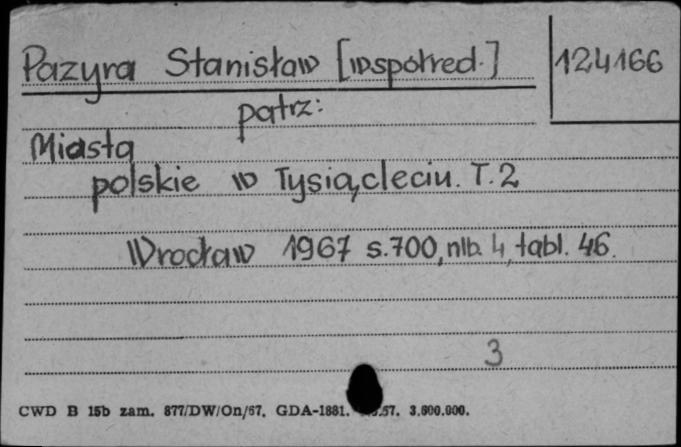 Pazyra Stanisław [współred.]
124166
patrz:
Miasta
polskie w Tysiącleciu. T. 2
Wrocław 1967 s. 700, nlb. 4, tabl. 46.
3
CWD B 15b zam. 877/DW/On/67. GDA-1881. .57. 3.600.000.